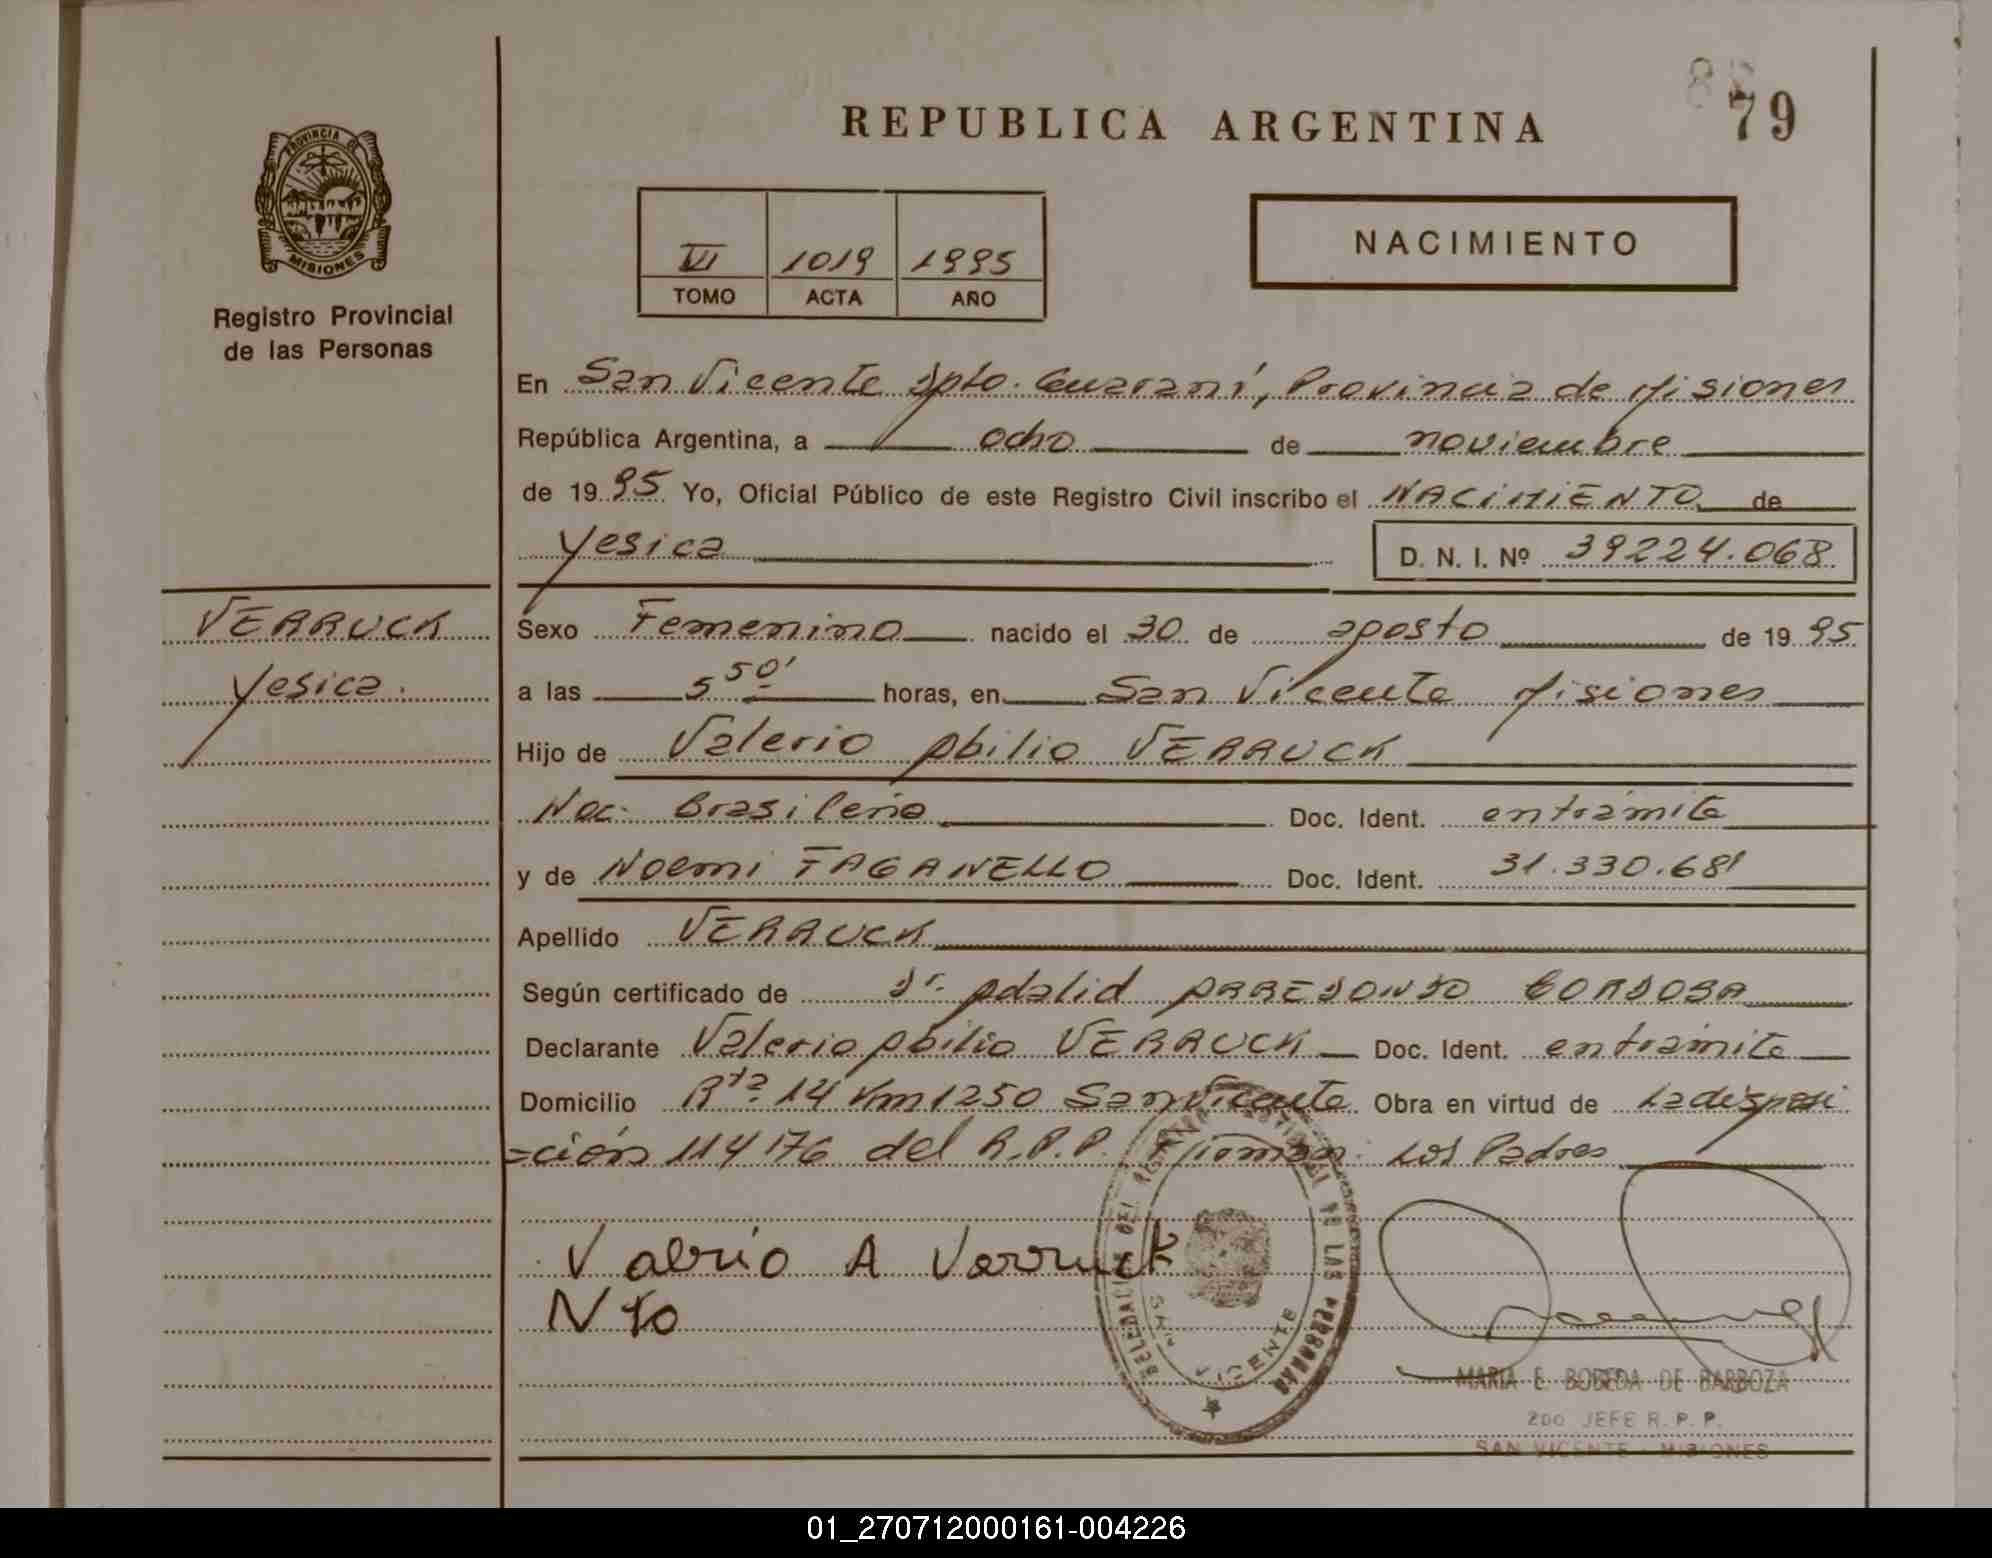 79
REPUBLICA ARGENTINA
PROVINCIA DE
MISIONES
Registro Provincial
de las Personas
VI 1019 1995
TOMO ACTA AÑO
NACIMIENTO
En San Vicente Dpto. Guaraní, Provincia de Misiones
República Argentina, a ocho de noviembre
de 1995 Yo, Oficial Público de este Registro Civil inscribo el NACIMIENTO de
Yesica D. N. I. Nº 39224.068
VERRUCK
Yesica.
Sexo Femenino nacido el 30 de agosto de 1995
a las 5 50' horas, en San Vicente Misiones
Hijo de Valerio Abilio VERRUCK
Nac. Brasileña Doc. Ident. en trámite
y de Noemi FAGANELLO Doc. Ident. 31.330.681
Apellido VERRUCK
Según certificado de Dr. Adalid ARREDONDO CORDOBA
Declarante Valerio Abilio VERRUCK Doc. Ident. en trámite
Domicilio Rta. 14 Km 1250 San Vicente Obra en virtud de La disposi
=ción 114/76 del R.P.P. Firman: Los Padres
Valerio A Verruck
DEL REGISTRO DE LAS PERSONAS
SAN VICENTE
MARIA E. BOBEDA DE BARBOZA
2DO JEFE R. P. P.
SAN VICENTE - MISIONES
01_270712000161-004226